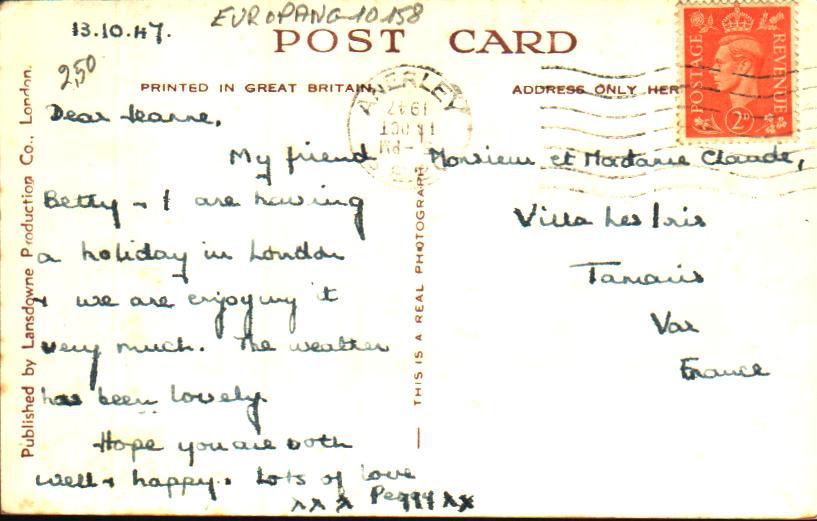 13.10.47.
EUROPANG-10158
2,50
POST CARD
PRINTED IN GREAT BRITAIN.
ADDRESS ONLY HER
Published by Lansdowne Production Co., London.
THIS IS A REAL PHOTOGRAPH
Dear Jeanne,
My friend
Betty + I are having
a holiday in London
+ we are enjoying it
very much. The weather
has been lovely
Hope you are both
well + happy. Lots of love
x x x Peggy x x
Monsieur et Madame Claude,
Villa Les Iris
Tamaris
Var
France
ANERLEY
PM
OCT
1947
POSTAGE
REVENUE
2D